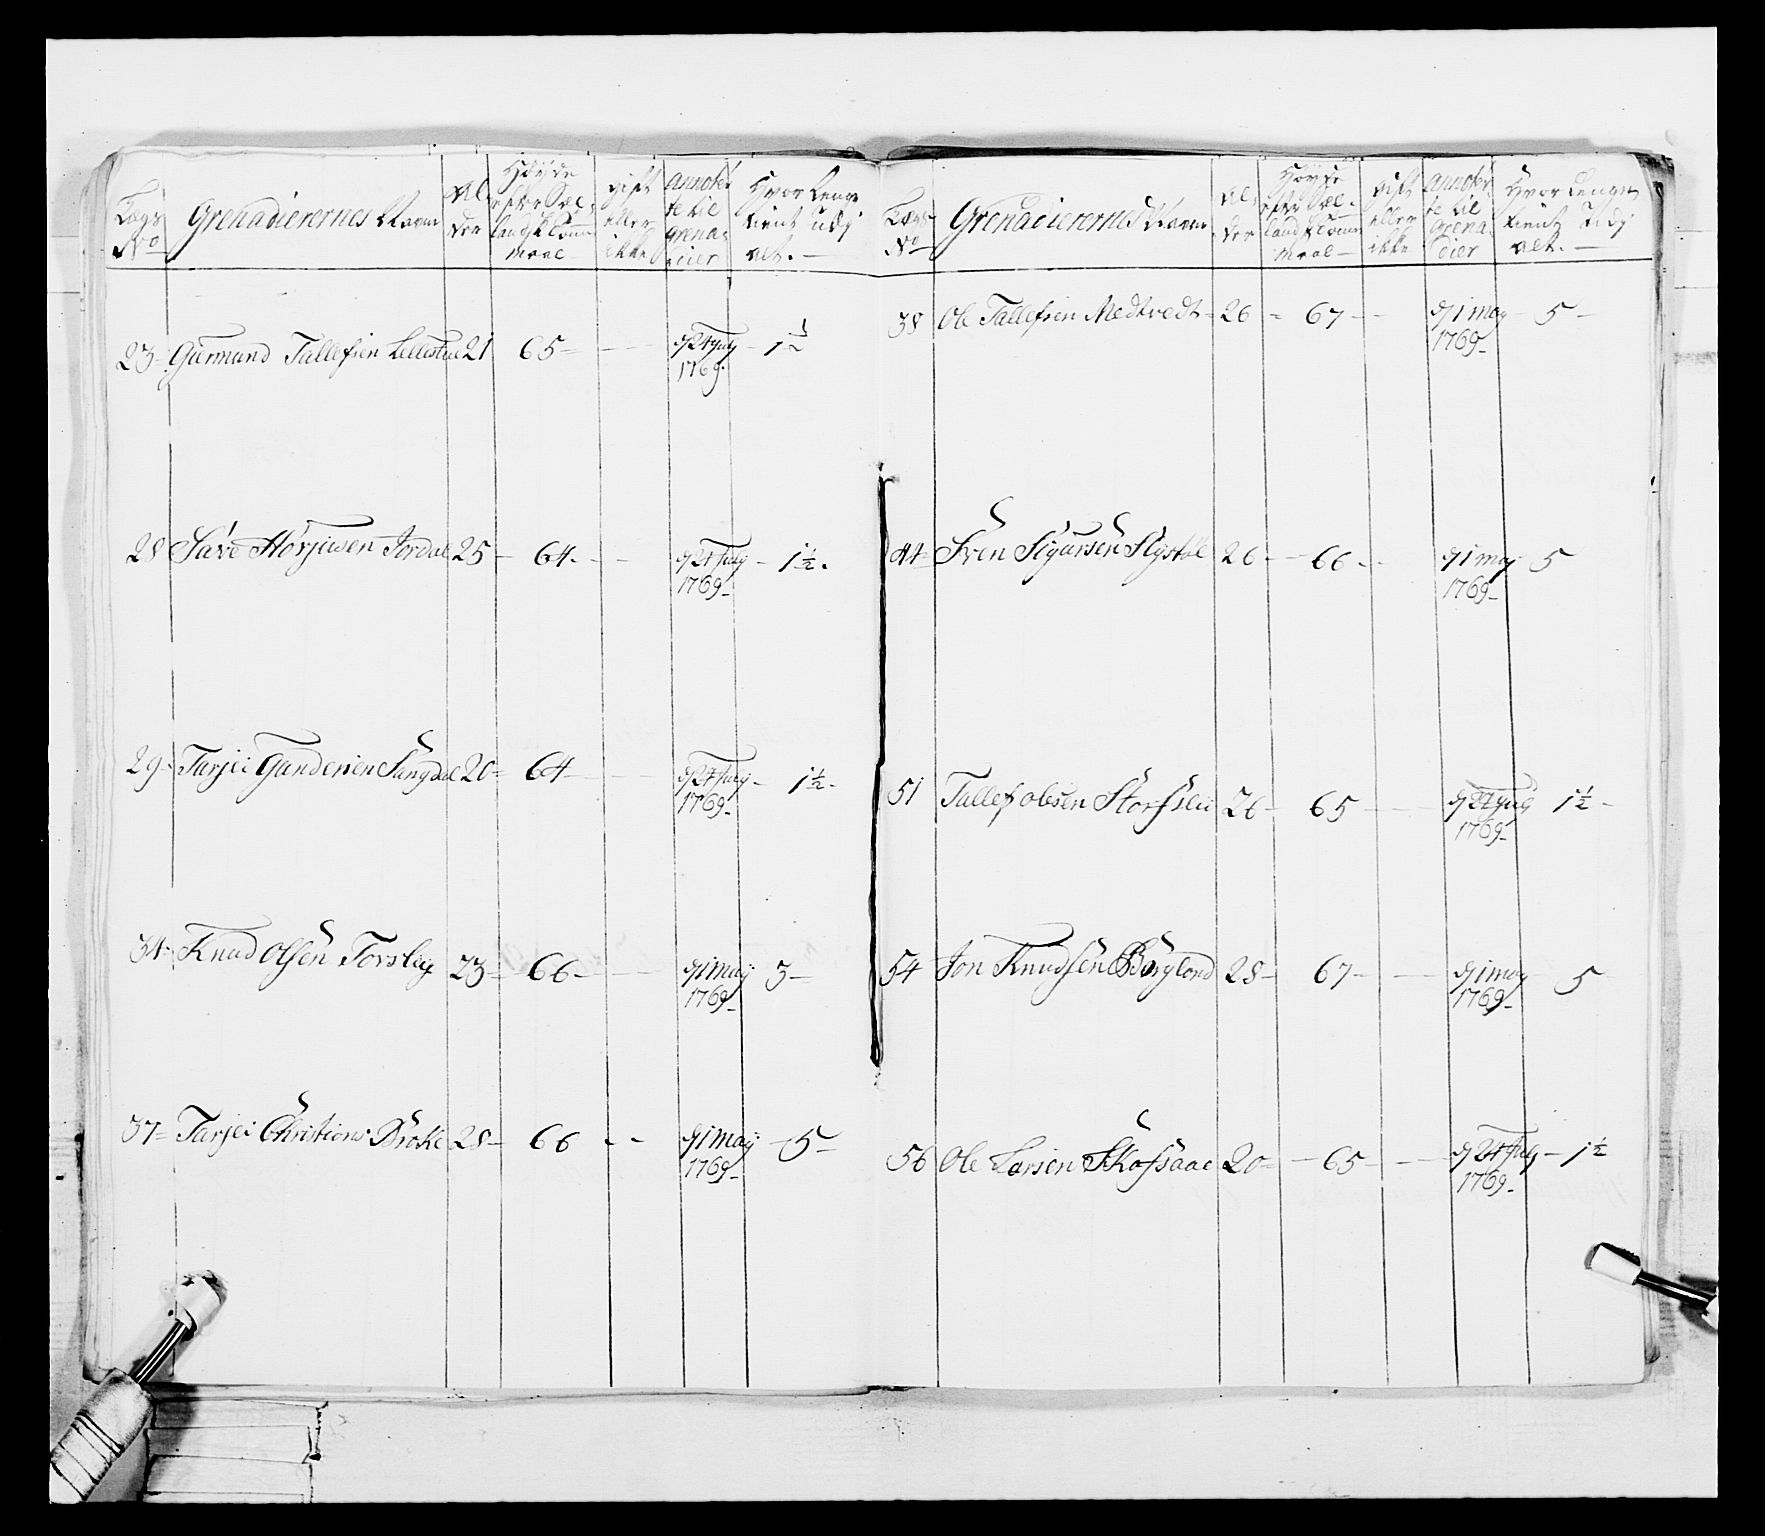 Lægs No
Grenadierernes Navn
Al der
Høyde efter Sæl landsk Tomme maal
gift eller ikke
annoter te til grena dier
Hvor Lenge tient udj alt.
23 Giermund Tallefsen Lillestue 21 65 d 24 July 1769 1½
28 Save Horjusen Jordal 25 64 d 24 July 1769 1½
29 Tarjei Gundersen Sangdal 20 64 d 24 July 1769 1½
34 Knud Olsen Torsley 23 66 d 1 may 1769 3
37 Tarjei Christians Broke 28 66 d 1 may 1769 5
Lægs No
Grenadierernes Navn
Al der
Høyde efter Sæl land Tomme maal
gift eller ikke
annoter te til grena dier
Hvor Lenge tient udj alt.
38 Ole Tallefsen Nedtvedt 26 67 d 1 may 1769 5
44 Sven Sigursen 26 66 d 1 may 1769 5
51 Tallef olesen 26 65 d 24 July 1769 1½
54 Jon Knudsen Bérglond 28 67 d 1 may 1769 5
56 Ole Larsen Skofsaae 20 65 d 24 July 1769 1½